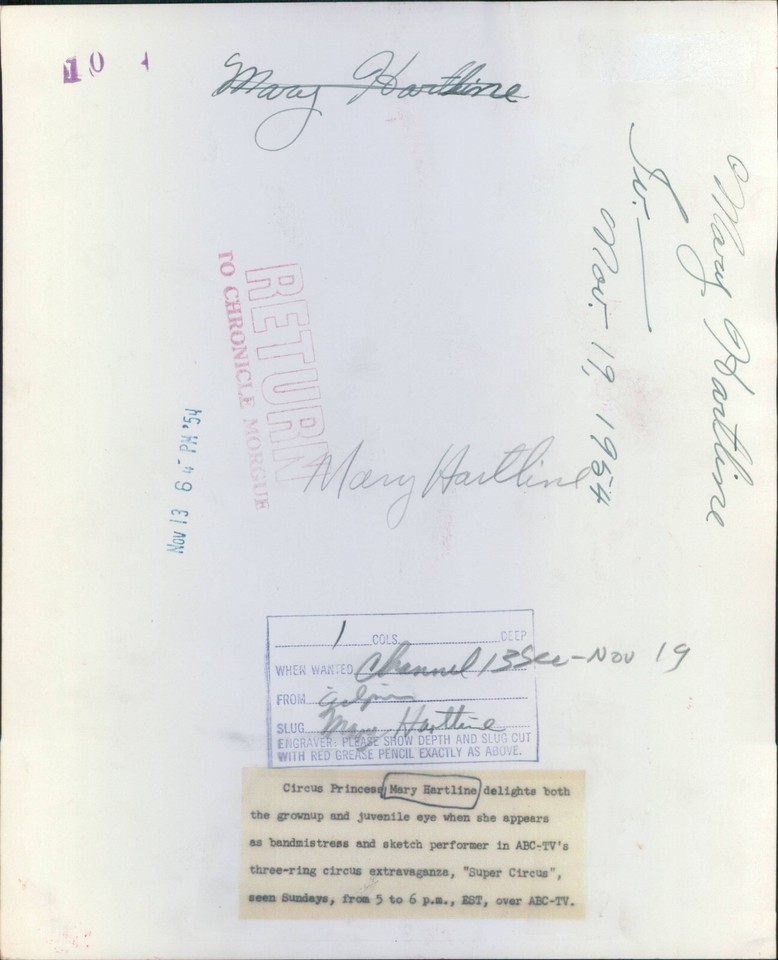 10
Mary Hartline
Mary Hartline
Nov. 19, 1954
RETURN
TO CHRONICLE MORGUE
Nov 13 6 45 PM '54
Mary Hartline
1 COLS. DEEP
WHEN WANTED Channel 13 Sec - Nov 19
FROM
SLUG Mary Hartline
ENGRAVER: PLEASE SHOW DEPTH AND SLUG CUT
WITH RED GREASE PENCIL EXACTLY AS ABOVE.
Circus Princess Mary Hartline delights both
the grownup and juvenile eye when she appears
as bandmistress and sketch performer in ABC-TV's
three-ring circus extravaganza, "Super Circus",
seen Sundays, from 5 to 6 p.m., EST, over ABC-TV.